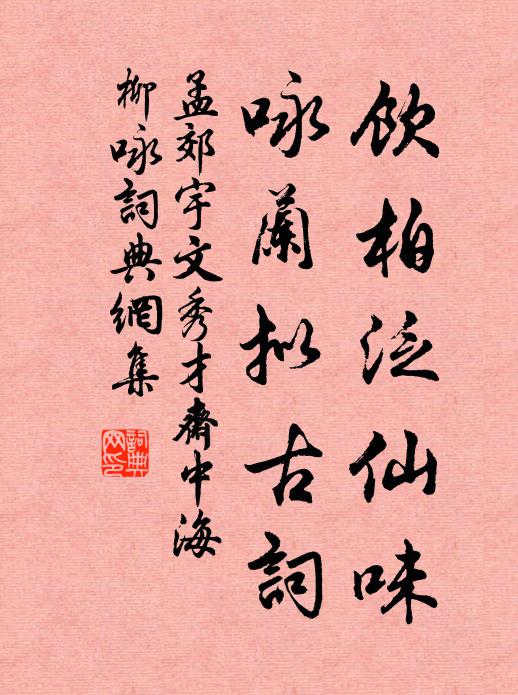 飲柏泛仙味
咏蘭拟古詞
孟郊宇文秀才齋中海
柳咏詞典網集
詞典
网印